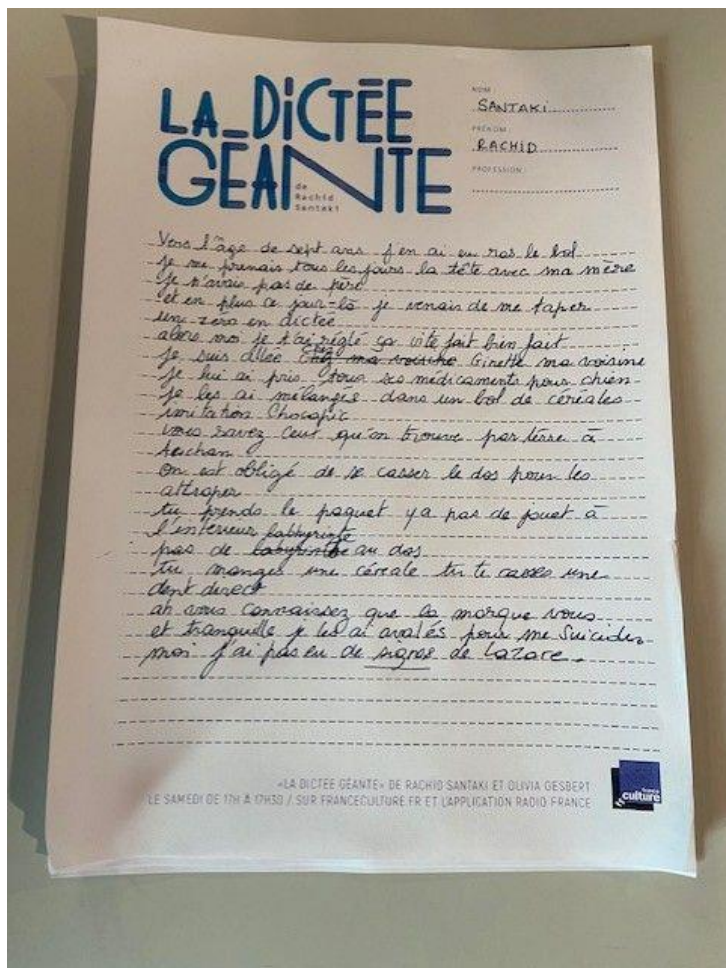 LA_DICTÉE
GÉANTE
de
Rachid
Santaki
NOM :
SANTAKI
PRÉNOM :
RACHID
PROFESSION :
Vers l'âge de sept ans j'en ai eu ras le bol
je me prenais tous les jours la tête avec ma mère
je n'avais pas de père
et en plus ce jour-là je venais de me taper
un zéro en dictée
alors moi je t'ai réglé ça vite fait bien fait
je suis allée chez ma voisine Ginette ma voisine
je lui ai pris tous ses médicaments pour chien
je les ai mélangés dans un bol de céréales
imitation Chocapic
vous savez ceux qu'on trouve par terre à
Auchan
on est obligé de se casser le dos pour les
attraper
tu prends le paquet y a pas de jouet à
l'intérieur labhyrinte
pas de labyrinthe au dos
tu manges une céréale tu te casses une
dent direct
ah vous connaissez que la marque vous
et tranquille je les ai avalés pour me suicider
moi j'ai pas eu de signes de Lazare.
«LA DICTÉE GÉANTE» DE RACHID SANTAKI ET OLIVIA GESBERT
LE SAMEDI DE 17H À 17H30 / SUR FRANCECULTURE.FR ET L'APPLICATION RADIO FRANCE
france
culture